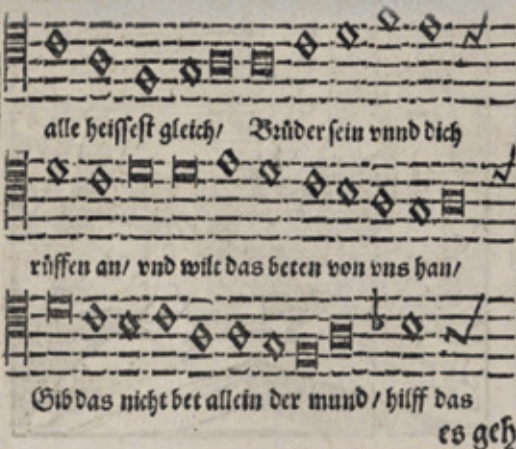 alle heissest gleich/ Brüder sein vnnd dich
rüffen an/ vnd wilt das beten von vns han/
Gib das nicht bet allein der mund/ hilff das
es geh